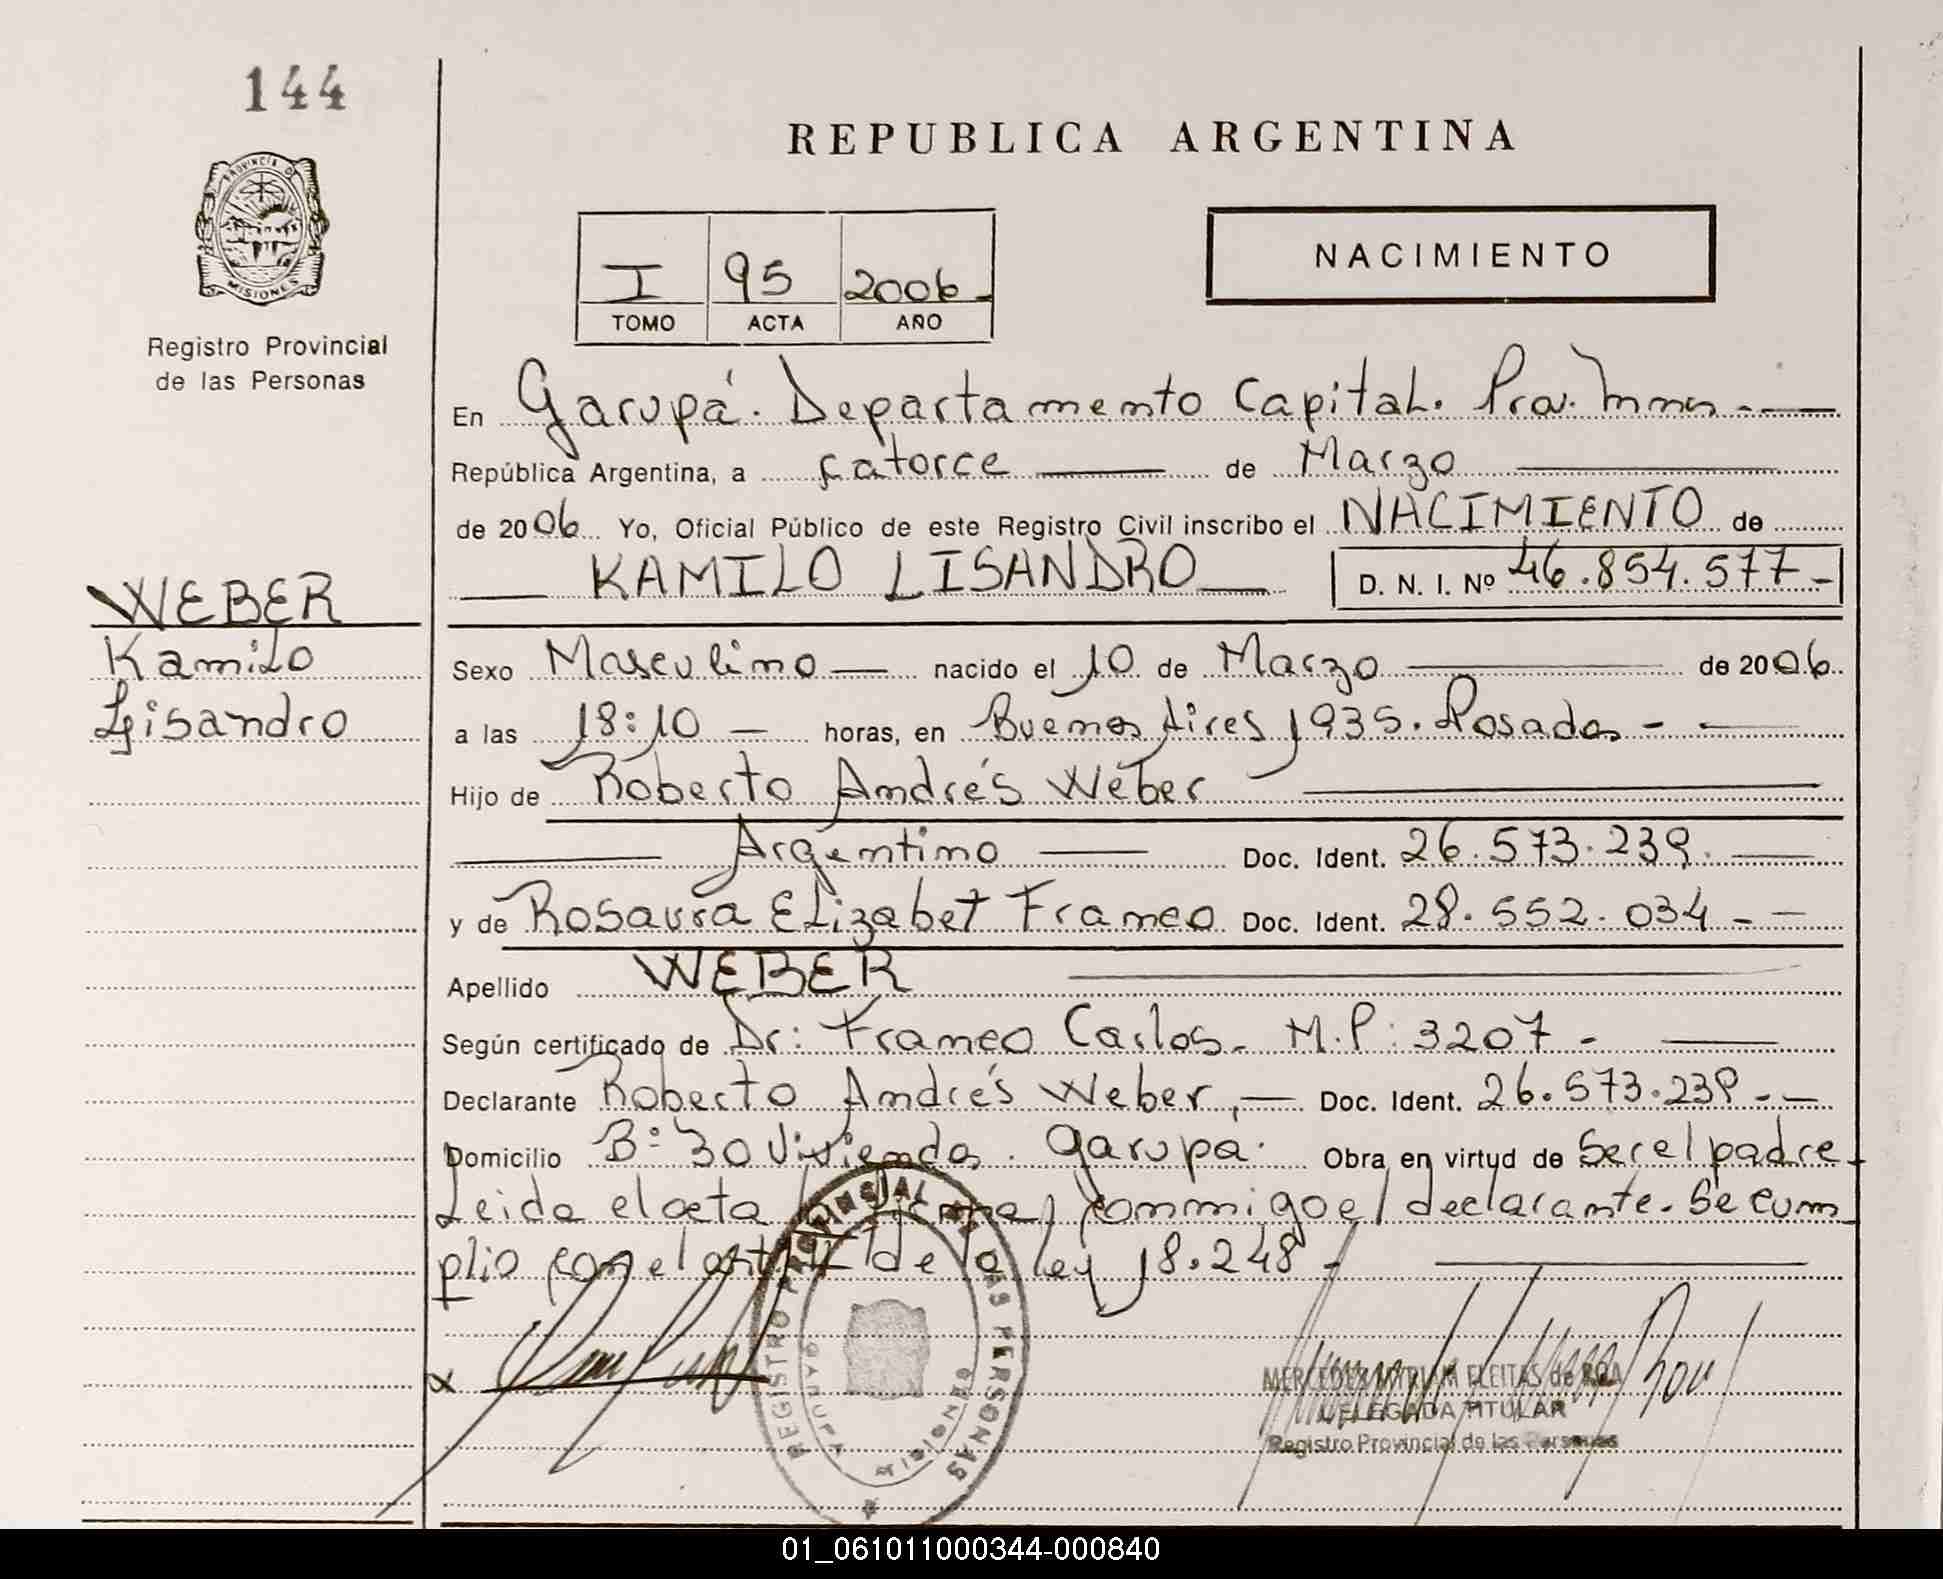 144
REPUBLICA ARGENTINA
PROVINCIA DE
MISIONES
Registro Provincial
de las Personas
NACIMIENTO
I 95 2006-
TOMO ACTA AÑO
En Garupá. Departamento Capital. Prov. Mnes.-
República Argentina, a catorce de Marzo
de 2006 Yo, Oficial Público de este Registro Civil inscribo el NACIMIENTO de
KAMILO LISANDRO D. N. I. Nº 46.854.577-
WEBER
Kamilo
Lisandro
Sexo Masculino nacido el 10 de Marzo de 2006
a las 18:10 - horas, en Buenos Aires 1935. Posadas -
Hijo de Roberto Andrés Weber
Argentino Doc. Ident. 26.573.239.
y de Rosaura Elizabet Franco Doc. Ident. 28.552.034 - -
Apellido WEBER
Según certificado de Dr: Franco Carlos. M.P: 3207 -
Declarante Roberto Andrés Weber, Doc. Ident. 26.573.239 - -
Domicilio Bº 30 Viviendas. Garupá. Obra en virtud de Ser el padre.
Leida el acta la firma conmigo el declarante. Se cum
plio con el art. de la ley 18.248 -
x
REGISTRO PROVINSIAL DE LAS PERSONAS
GARUPA
Misiones
MERCEDES MYRIAM FLEITAS de ROA
DELEGADA TITULAR
Registro Provincial de las Personas
01_061011000344-000840